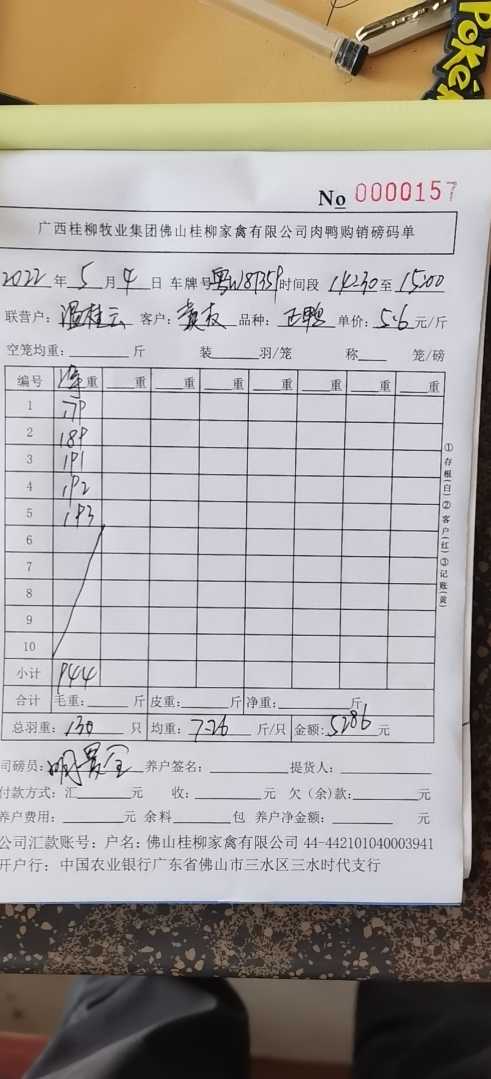 Poké
No 0000157
广西桂柳牧业集团佛山桂柳家禽有限公司肉鸭购销磅码单
2022 年 5 月 4 日 车牌号 时间段 14:30 至 15:00
联营户: 温桂云 客户: 品种: 正鸭 单价: 5.6 元/斤
空笼均重: 斤 装 羽/笼 称 笼/磅
编号 净重 重 重 重 重 重 重 重
1 179
2 189
3 191
4 192
5 193
6
7
8
9
10
小计 944
合计 毛重: 斤 皮重: 斤 净重: 斤
总羽重: 130 只 均重: 7.26 斤/只 金额: 5286 元
司磅员: 养户签名: 提货人:
付款方式: 汇 元 收: 元 欠(余)款: 元
养户费用: 元 余料 包 养户净金额: 元
公司汇款账号: 户名: 佛山桂柳家禽有限公司 44-442101040003941
开户行: 中国农业银行广东省佛山市三水区三水时代支行
①存根(白)②客户(红)③记账(黄)